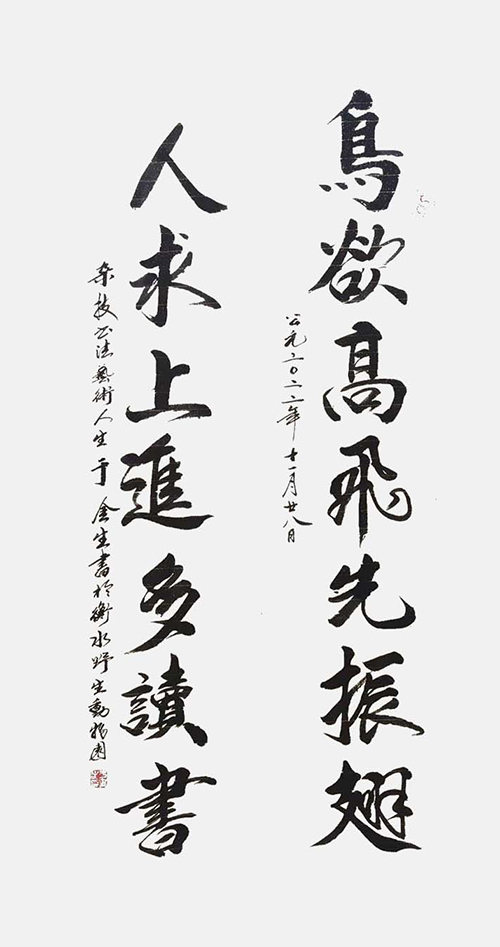 鳥欲高飛先振翅
公元二〇二二年十一月廿八日
人求上進多讀書
杂技书法藝術人生于金生書於衡水野生動物園